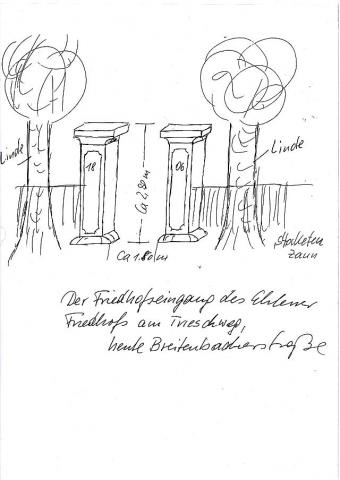 Linde
18
06
Ca 2,80 m
Linde
Staketen
zaun
Ca 1.80 m
Der Friedhofseingang des Ehlener
Friedhofs am Trieschweg,
heute Breitenbacherstraße